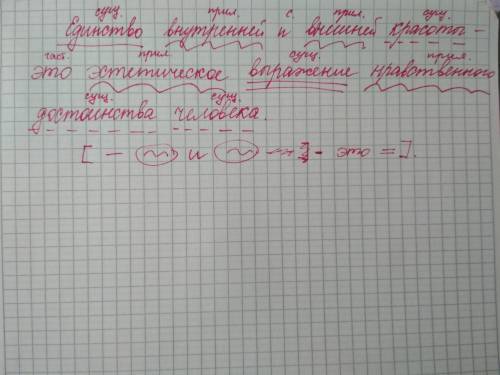 сущ. прил. с. прил. сущ.
Единство внутренней и внешней красоты –
част. прил. сущ. прил.
это эстетическое выражение нравственного
сущ. сущ.
достоинства человека.
[ — и ] - это = ].